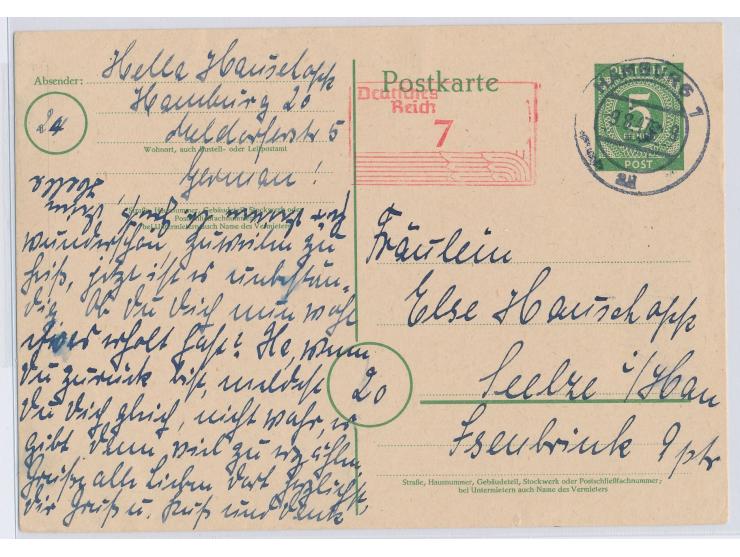 Absender: Hella Hauschopp
Hamburg 20
24
5
Wohnort, auch Zustell- oder Leitpostamt
German!
Straße, Hausnummer, Gebäudeteil, Stockwerk oder
Postschließfachnummer;
bei Untermietern auch Name des Vermieters
wunderschön, zuweilen zu
heiß, jetzt ist es unbestän-
dig. Ob Du Dich nun wohl
etwas erholt hast? Na, wenn
Du zurück bist, meldest
Du Dich gleich, nicht wahr, es
gibt denn viel zu erzählen.
Grüße alle Lieben dort herzlichst,
Dir Gruß u. Kuß und Dank
Postkarte
Deutsches
Reich
7
5
PFENNIG
POST
HAMBURG 1
Fräulein
Else Hauschopp
20
Seelze i/Han
Isenbrink 9 ptr
Straße, Hausnummer, Gebäudeteil, Stockwerk oder Postschließfachnummer;
bei Untermietern auch Name des Vermieters